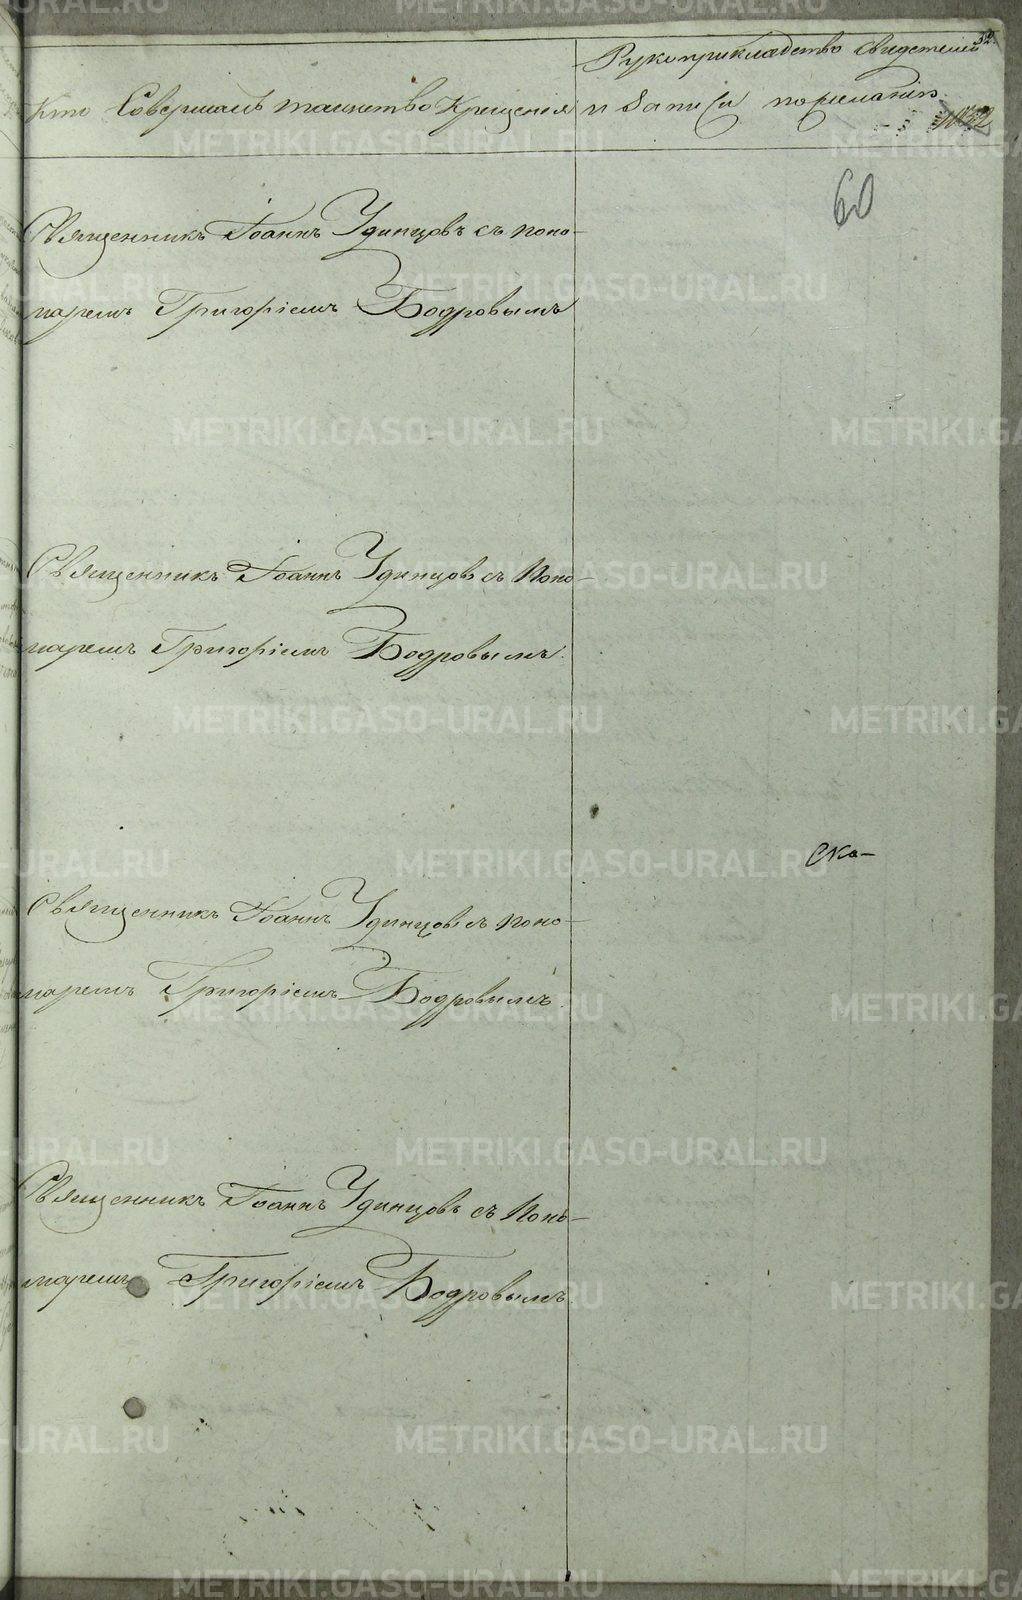 32.
Кто Совершалъ таинство Крещенiя
Рукоприкладство свидетелей
и записи пожеланiю
60
Священникъ Iоаннъ Удинцовъ съ поно-
маремъ Григорiемъ Бодровымъ
Священникъ Iоаннъ Удинцовъ съ Поно-
маремъ Григорiемъ Бодровымъ.
ска-
Священникъ Iоаннъ Удинцовъ съ поно-
маремъ Григорiемъ Бодровымъ.
Священникъ Iоаннъ Удинцовъ съ Поно-
маремъ Григорiемъ Бодровымъ.
METRIKI.GASO-URAL.RU